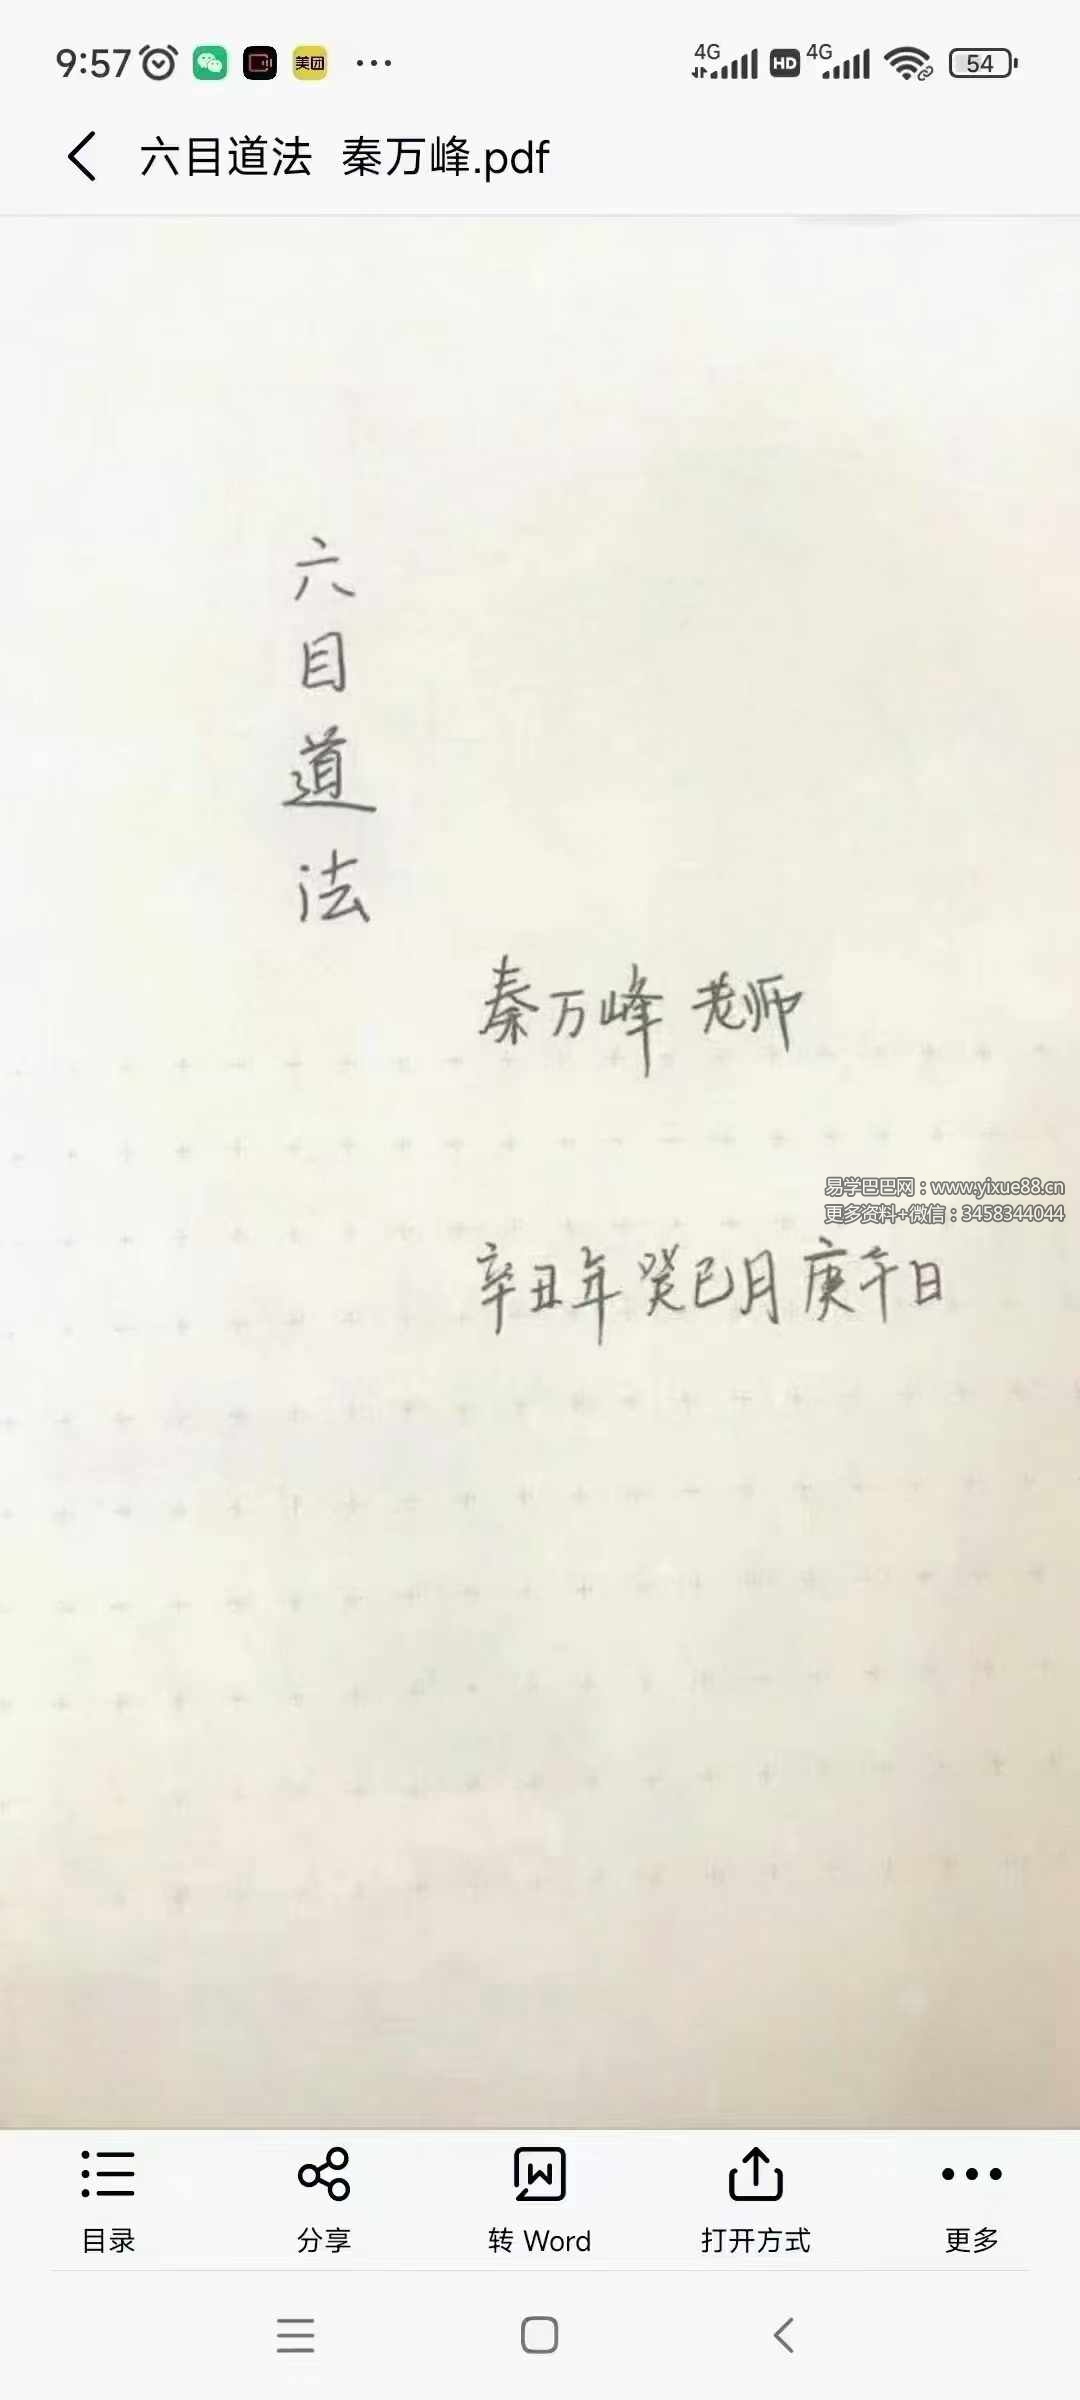 9:57 美团 ... 4G HD 4G 54
六目道法 秦万峰.pdf
六目道法
秦万峰 老师
易学巴巴网：www.yixue88.cn
更多资料+微信：3458344044
辛丑年 癸巳月 庚午日
目录 分享 转 Word 打开方式 更多